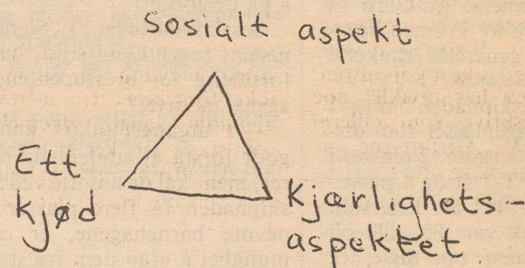 Sosialt aspekt
Ett
kjød
Kjærlighets-
aspektet